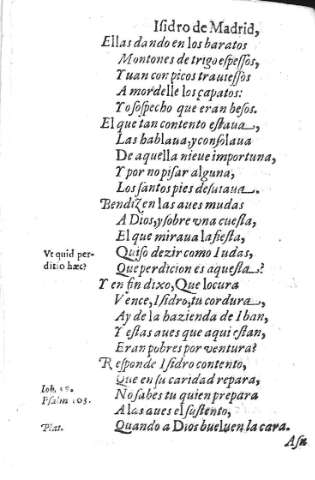 Isidro de Madrid,
Ellas dando en los baratos
Montones de trigo espessos,
Yuan con picos trauessos
A mordelle los çapatos:
Yo sospecho que eran besos.
El que tan contento estaua,
Las hablaua, y consolaua
De aquella nieue importuna,
Y por no pisar alguna,
Los santos pies desuiaua.
Bendizen las aues mudas
A Dios, y sobre vna cuesta,
El que miraua la fiesta,
Ut quid per-
Quiso dezir como Iudas,
ditio hæc?
Que perdicion es aquesta?
Y en fin dixo, Que locura
Vence, Isidro, tu cordura,
Ay de la hazienda de Iban,
Y estas aues que aqui estan,
Eran pobres por ventura?
Responde Isidro contento,
Iob.
Que en su caridad repara,
Psalm 103.
No sabes tu quien prepara
A las aues el sustento,
Plat.
Quando a Dios bueluen la cara.